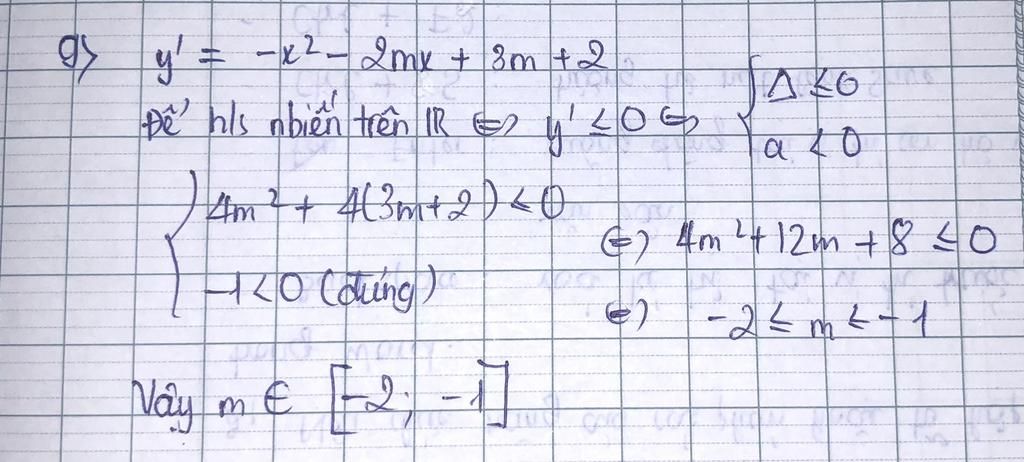 g) y' = -x² - 2mx + 3m + 2
Để h/s nbiến trên ℝ ⇔ y' ≤ 0 ⇔ { Δ ≤ 0
a < 0
{ 4m² + 4(3m+2) ≤ 0
-1 < 0 (đúng)
⇔ 4m² + 12m + 8 ≤ 0
⇔ -2 ≤ m ≤ -1
Vậy m ∈ [-2; -1]